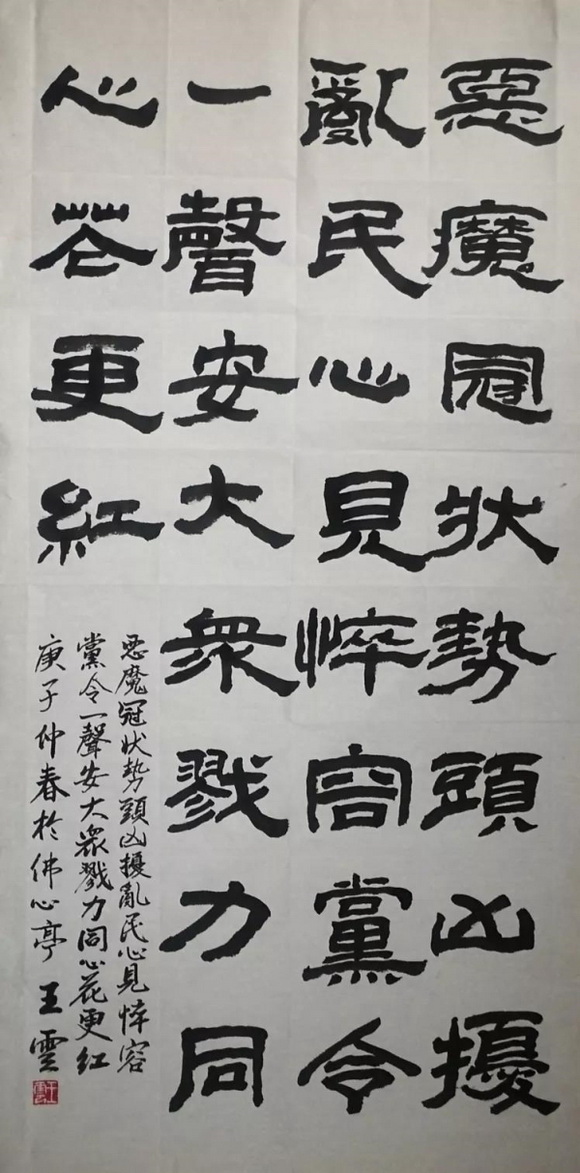 惡魔冠狀勢頭凶擾
亂民心見悴容黨令
一聲安大眾戮力同
心花更紅
惡魔冠狀勢頭凶擾亂民心見悴容
黨令一聲安大眾戮力同心花更紅
庚子仲春於佛心亭 王雲
王雲